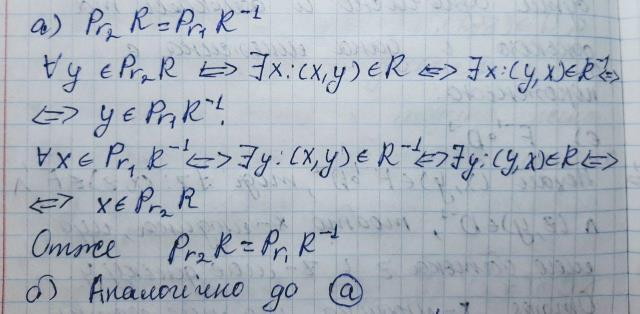 а) Pr₂ R = Pr₁ R⁻¹
∀y ∈ Pr₂ R ⇔ ∃x: (x,y) ∈ R ⇔ ∃x: (y,x) ∈ R⁻¹ ⇔
⇔ y ∈ Pr₁ R⁻¹.
∀x ∈ Pr₁ R⁻¹ ⇔ ∃y: (x,y) ∈ R⁻¹ ⇔ ∃y: (y,x) ∈ R ⇔
⇔ x ∈ Pr₂ R
Отже Pr₂ R = Pr₁ R⁻¹
б) Аналогічно до а